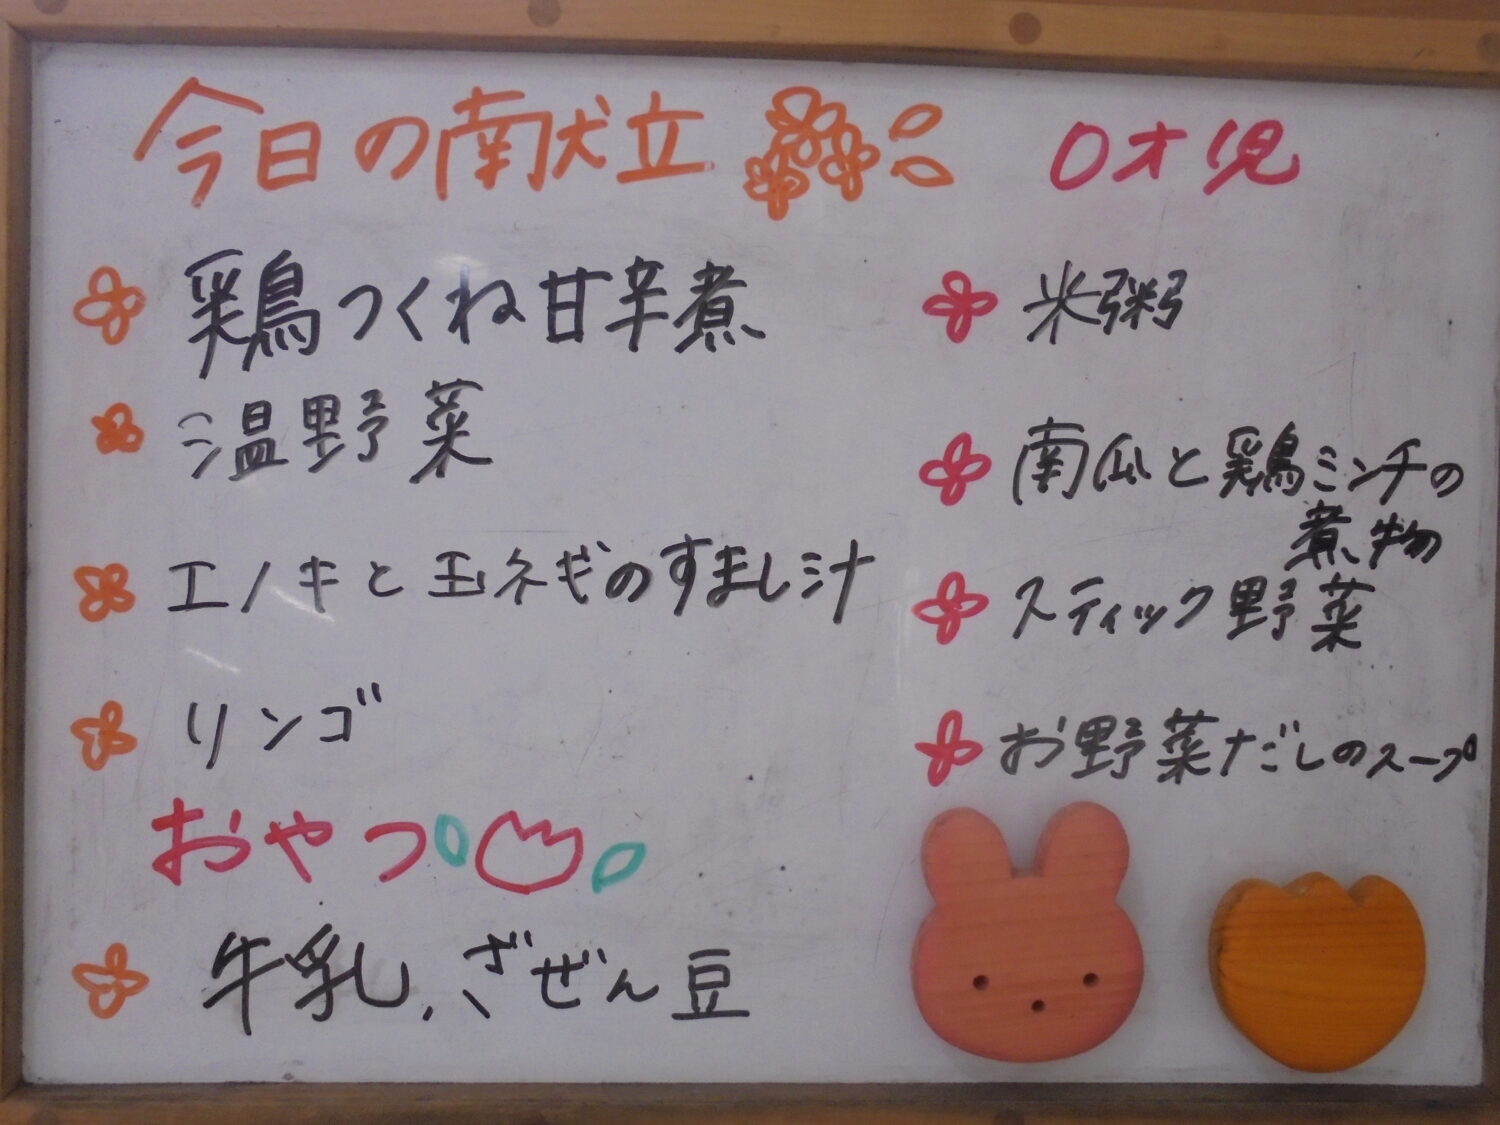 今日の献立
鶏つくね甘辛煮
温野菜
エノキと玉ネギのすまし汁
リンゴ
おやつ
牛乳、ざぜん豆
0才児
米粥
南瓜と鶏ミンチの
煮物
スティック野菜
お野菜だしのスープ